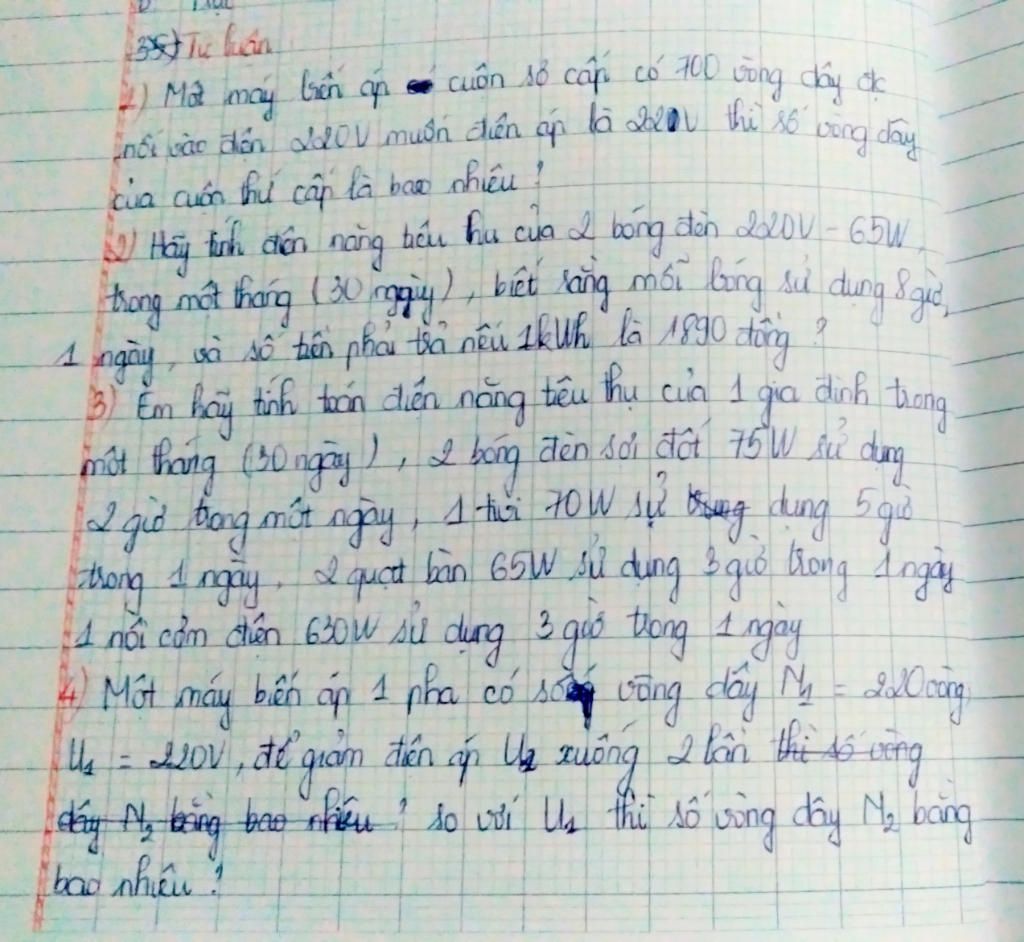 Tự luận
1) Một máy biến áp cuộn sơ cấp có 700 vòng dây đc
nối vào điện 220V muốn điện áp là 220V thì số vòng dây
của cuộn thứ cấp là bao nhiêu?
2) Hãy tính điện năng tiêu thụ của 2 bóng đèn 220V - 65W,
trong một tháng (30 ngày), biết rằng mỗi bóng sử dụng 8 giờ,
1 ngày, và số tiền phải trả nếu 1kWh là 1890 đồng?
3) Em hãy tính toán điện năng tiêu thụ của 1 gia đình trong
một tháng (30 ngày), 2 bóng đèn sợi đốt 75W sử dụng
2 giờ trong một ngày, 1 tivi 70W sử dụng 5 giờ
trong 1 ngày, 2 quạt bàn 65W sử dụng 3 giờ trong 1 ngày
1 nồi cơm điện 630W sử dụng 3 giờ trong 1 ngày
4) Một máy biến áp 1 pha có số vòng dây N1 = 220 vòng,
U1 = 220V, để giảm điện áp U2 xuống 2 lần thì số vòng
dây N2 bằng bao nhiêu? so với U1 thì số vòng dây N2 bằng
bao nhiêu?